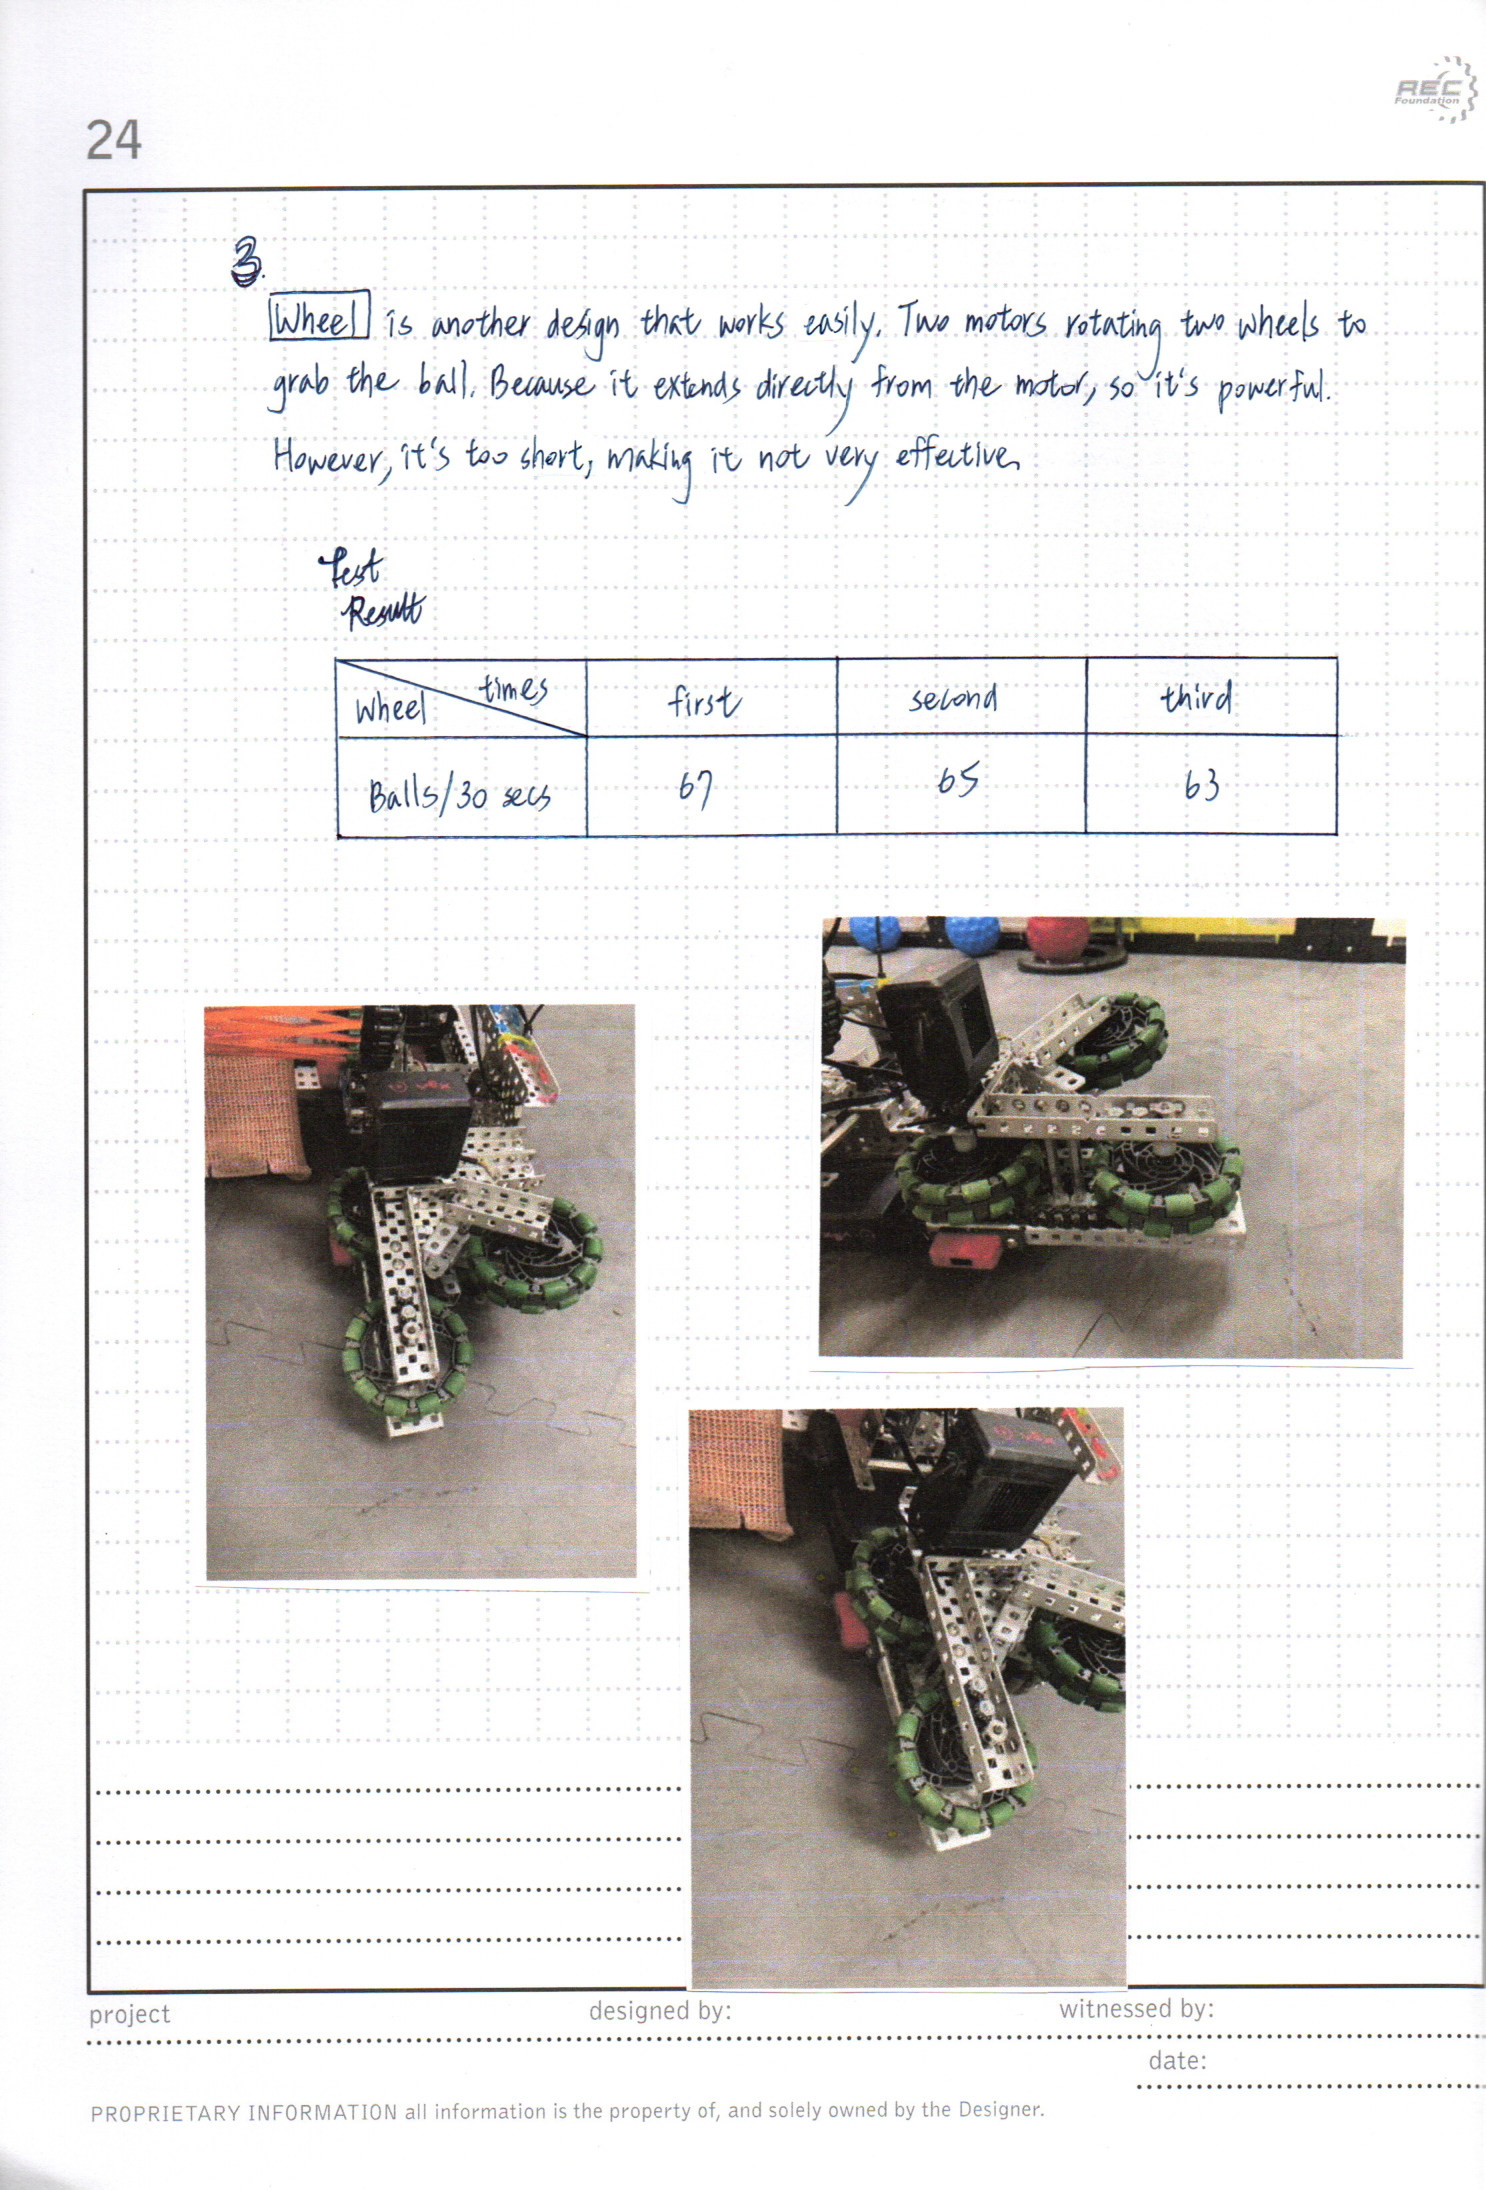 REC
Foundation
24
3.
Wheel is another design that works easily. Two motors rotating two wheels to
grab the ball. Because it extends directly from the motor, so it's powerful.
However, it's too short, making it not very effective.
Test
Result
Wheel times first second third
Balls/30 secs 67 65 63
vex
vex
project designed by: witnessed by:
date:
PROPRIETARY INFORMATION all information is the property of, and solely owned by the Designer.